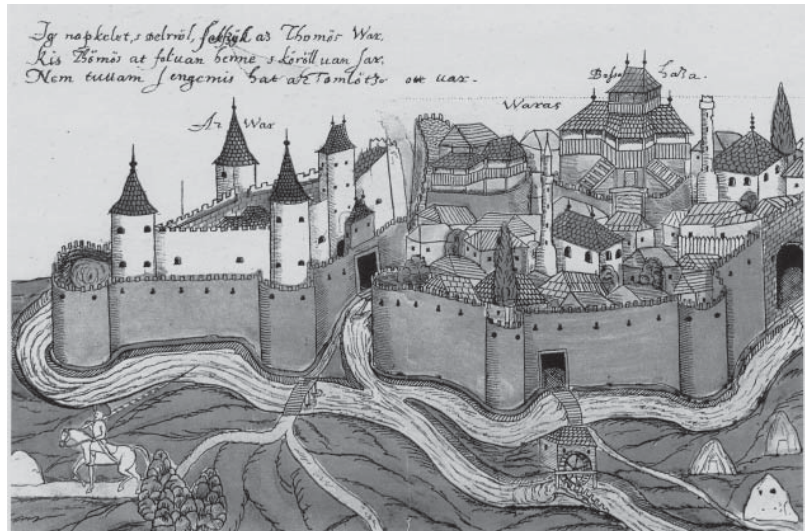 Ig napkelet, s delröl, az Thömös War,
Kis Thömös at foluan benne s köröll uan sar,
Nem engemis hat az Tomlötze ott uar.
Az War
Waras
haza.